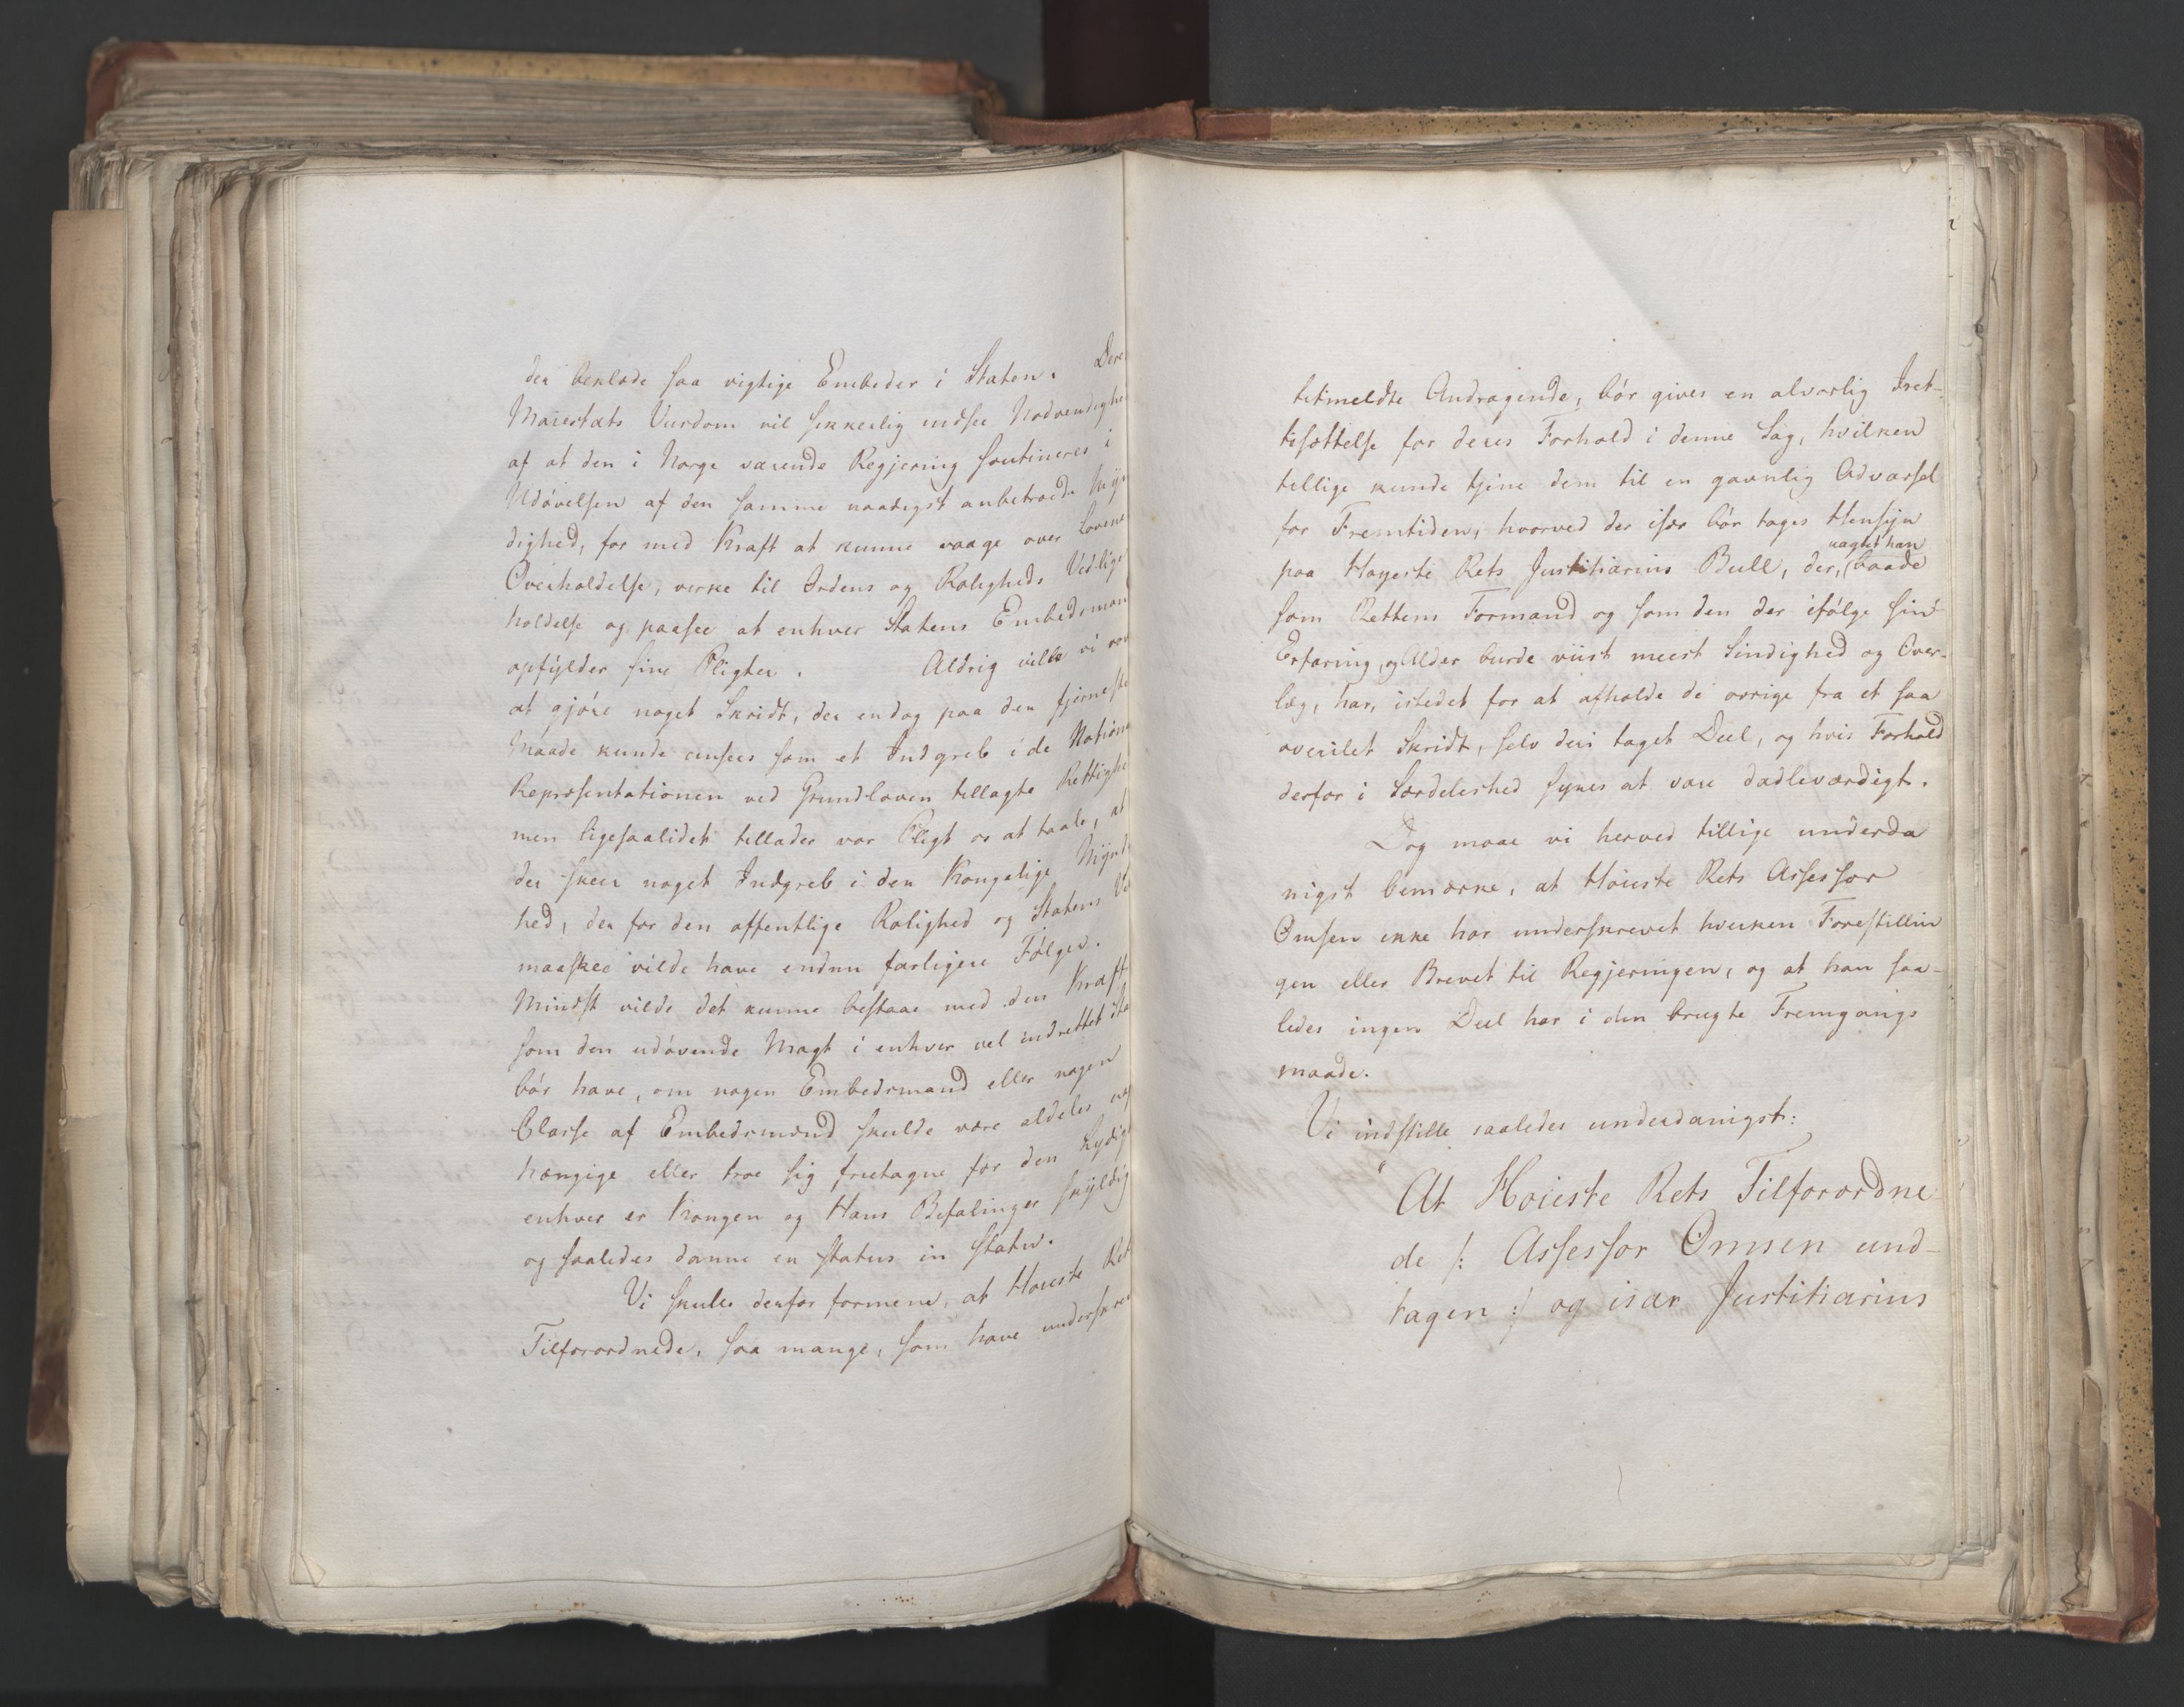 der beklæde saa vigtige Embeder i Staten. Dere
Maiestæts Viisdom vil sikkerlig indsee Nødvendighe
af at den i Norge værende Regjering soutineres i
Udøvelsen af den samme naadigst anbetroede Myn
dighed, for med Kraft at kunne vaage over Lovene
Overholdelse, virke til Ordens og Roligheds Vedlige
holdelse og paasee at enhver Statens Embedsman
opfylder sine Pligter. Aldrig ville vi vov
at gjøre noget Skridt, der endog paa den fjerneste
Maade kunde ansees som et Indgreb i de Nation
Repræsentationen ved Grundloven tillagte Rettighe
men ligesaalidet tillader vor Pligt os at taale, at
der skeer noget Indgreb i den Kongelige Mynd
hed, der for den offentlige Rolighed og Statens Ve
maaskee vilde have endnu farligere Følger.
Mindst vilde det kunne bestaae med den Kraft
som den udøvende Magt i enhver vel indrettet Sta
bør have, om nogen Embedsmand eller nogen
Classe af Embedsmænd skulde være aldeles uaf
hængige eller troe sig fritagne for den Lydigh
enhver er Kongen og Hans Befalinger skyldig
og saaledes danne en status in statu.
Vi skulle derfor formene, at Høieste Ret
Tilforordnede, saa mange, som have underskre
bitmeldte Andragende, bør gives en alvorlig Iret-
tesættelse for deres Forhold i denne Sag, hvilken
tillige kunde tjene dem til en gavnlig Advarsel
for Fremtiden, hvorved der især bør tages Hensyn
uagtet han
paa Høyeste Rets Justitiarius Bull, der, (baade
som Rettens Formand og som den der ifølge sin
Erfaring, og Alder burde viist meest Sindighed og Over-
læg, har, istedet for at afholde de øvrige fra et saa
overilet Skridt, selv deri taget Deel, og hvis Forhold
derfor i Særdeleshed synes at være dadleværdigt.
Dog maae vi herved tillige underda
nigst bemærke, at Høieste Rets Assessor
Omsen ikke har underskrevet hverken Forestillin
gen eller Brevet til Regjeringen, og at han saa-
ledes ingen Deel har i den brugte Fremgangs
maade.
Vi indstille saaledes underdanigst:
"At Høieste Rets Tilforordne
de /: Assessor Omsen und-
tagen :/ og især Justitiarius